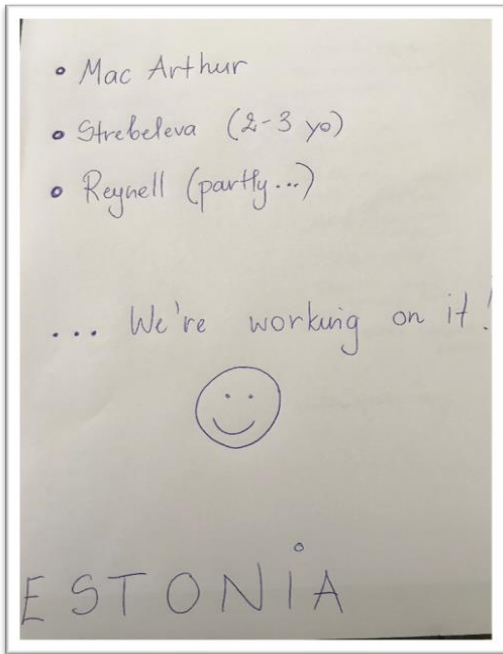 Mac Arthur
Strebeleva (2-3 yo)
Reynell (partly...)
... We're working on it!
ESTONiA